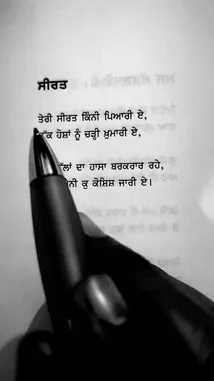 ਸੀਰਤ
ਤੇਰੀ ਸੀਰਤ ਕਿੰਨੀ ਪਿਆਰੀ ਏ,
ਹੋਸ਼ਾਂ ਨੂੰ ਚੜ੍ਹੀ ਖ਼ੁਮਾਰੀ ਏ,
ਦਾ ਹਾਸਾ ਬਰਕਰਾਰ ਰਹੇ,
ਕੁ ਕੋਸ਼ਿਸ਼ ਜਾਰੀ ਏ।